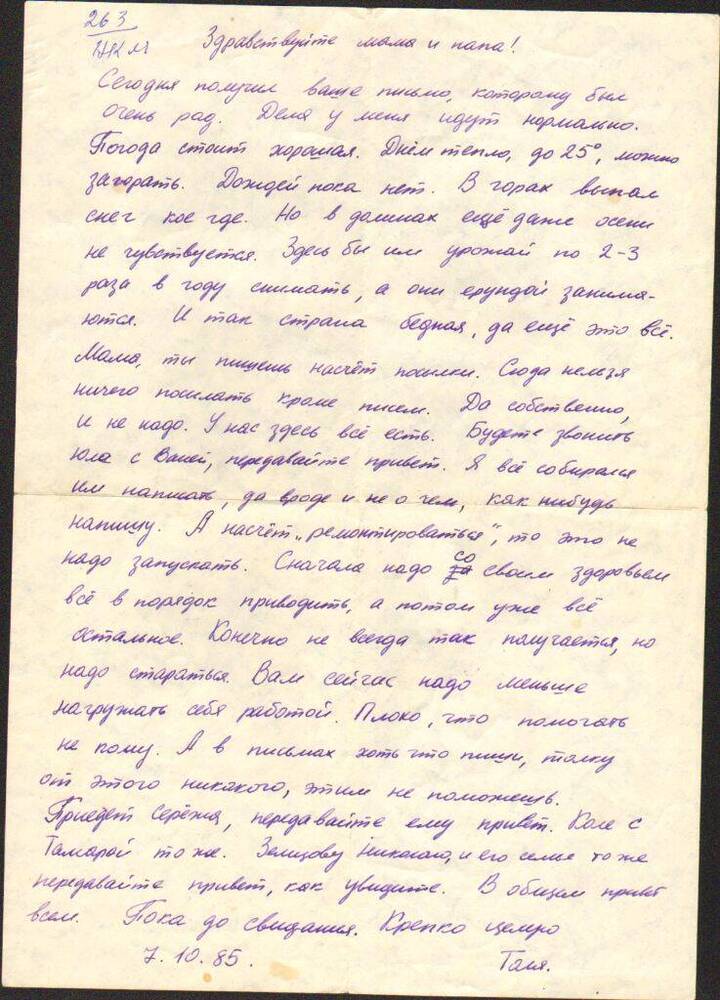 263
ЖКМ
Здравствуйте мама и папа!
Сегодня получил ваше письмо, которому был
очень рад. Дела у меня идут нормально.
Погода стоит хорошая. Днём тепло, до 25°, можно
загорать. Дождей пока нет. В горах выпал
снег кое где. Но в долинах ещё даже осени
не чувствуется. Здесь бы им урожай по 2-3
раза в году снимать, а они ерундой занима-
ются. И так страна бедная, да ещё это всё.
Мама, ты пишешь насчёт посылки. Сюда нельзя
ничего посылать кроме писем. Да собственно,
и не надо. У нас здесь всё есть. Будете звонить
юла с Ваней, передавайте привет. Я всё собирался
им написать, да вроде и не о чем, как нибудь
напишу. А насчёт „ремонтироваться", то это не
надо запускать. Сначала надо со своим здоровьем
всё в порядок приводить, а потом уже всё
остальное. Конечно не всегда так получается, но
надо стараться. Вам сейчас надо меньше
нагружать себя работой. Плохо, что помогать
не кому. А в письмах хоть что пиши, толку
от этого никакого, этим не поможешь.
Приедет Серёжа, передавайте ему привет. Коле с
Тамарой то же. Николаю, и его семье то же
передавайте привет, как увидите. В общем привет
всем. Пока до свидания. Крепко целую
7.10.85. Галя.